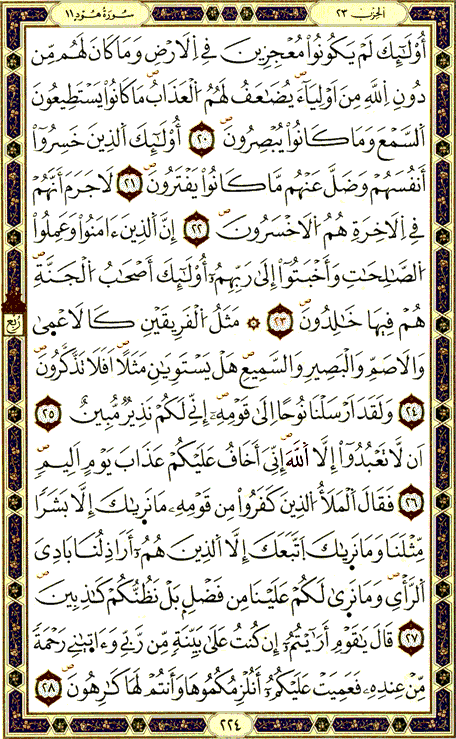 الحزب ٢٣
سورة هود ١١
أُوْلَٰٓئِكَ لَمْ يَكُونُواْ مُعْجِزِينَ فِي اِلَارْضِ وَمَا كَانَ لَهُم مِّن
دُونِ اِللَّهِ مِنَ اَوْلِيَآءَ يُضَٰعَفُ لَهُمُ اُلْعَذَابُ مَا كَانُواْ يَسْتَطِيعُونَ
اَلسَّمْعَ وَمَا كَانُواْ يُبْصِرُونَ ٢٠ أُوْلَٰٓئِكَ اَلذِينَ خَسِرُوٓاْ
أَنفُسَهُمْ وَضَلَّ عَنْهُم مَّا كَانُواْ يَفْتَرُونَ ٢١ لَا جَرَمَ أَنَّهُمْ
فِي اِلَاخِرَةِ هُمُ اُلَاخْسَرُونَ ٢٢ إِنَّ اَلذِينَ ءَامَنُواْ وَعَمِلُواْ
اُلصَّٰلِحَٰتِ وَأَخْبَتُوٓاْ إِلَىٰ رَبِّهِمُۥٓ أُوْلَٰٓئِكَ أَصْحَٰبُ اُلْجَنَّةِ
هُمْ فِيهَا خَٰلِدُونَ ٢٣ ۞ مَثَلُ اُلْفَرِيقَيْنِ كَالَاعْمَىٰ
وَالَاصَمِّ وَالْبَصِيرِ وَالسَّمِيعِ هَلْ يَسْتَوِيَٰنِ مَثَلًا اَفَلَا تَذَّكَّرُونَ
٢٤ وَلَقَدَ اَرْسَلْنَا نُوحًا اِلَىٰ قَوْمِهِۦٓ إِنِّي لَكُمْ نَذِيرٌ مُّبِينٌ ٢٥
اَن لَّا تَعْبُدُوٓاْ إِلَّا اَللَّهَ إِنِّيَ أَخَافُ عَلَيْكُمْ عَذَابَ يَوْمٍ اَلِيمٍ
٢٦ فَقَالَ اَلْمَلَأُ اُلذِينَ كَفَرُواْ مِن قَوْمِهِۦ مَا نَرِىٰكَ إِلَّا بَشَرًا
مِّثْلَنَا وَمَا نَرِىٰكَ اَتَّبَعَكَ إِلَّا اَلذِينَ هُمُۥٓ أَرَاذِلُنَا بَادِيَ
اَلرَّأْيِ وَمَا نَرِىٰ لَكُمْ عَلَيْنَا مِن فَضْلٍ بَلْ نَظُنُّكُمْ كَٰذِبِينَ
٢٧ قَالَ يَٰقَوْمِ أَرَٰٓيْتُمُۥٓ إِن كُنتُ عَلَىٰ بَيِّنَةٍ مِّن رَّبِّي وَءَاتَىٰنِي رَحْمَةً
مِّنْ عِندِهِۦ فَعَمِيَتْ عَلَيْكُمُۥٓ أَنُلْزِمُكُمُوهَا وَأَنتُمْ لَهَا كَٰرِهُونَ ٢٨
٢٢٤